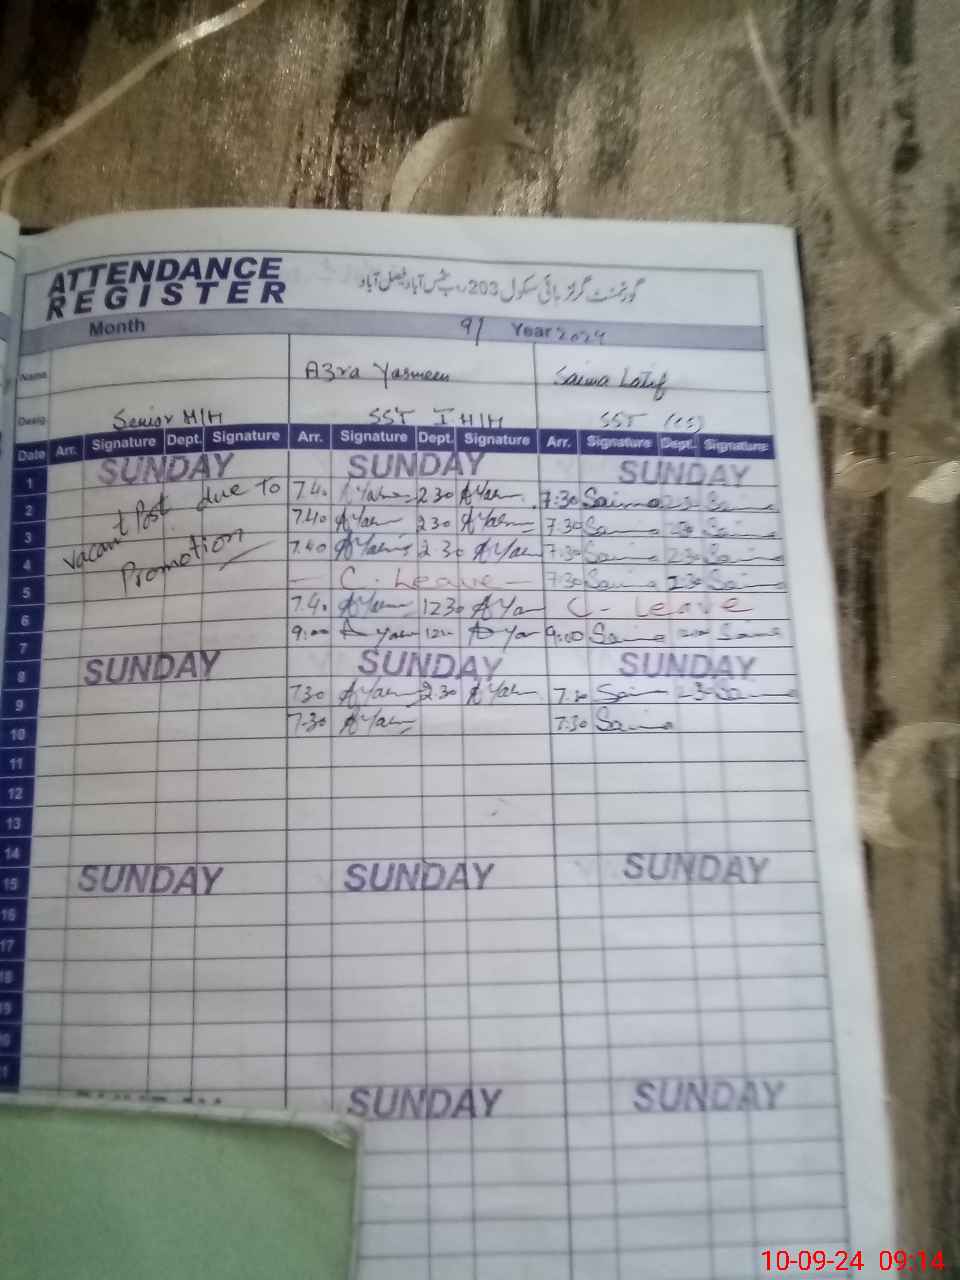 ATTENDANCE REGISTER گورنمنٹ گرلز ہائی سکول 203 ر ب شمس آباد فیصل آباد
Month 9/ Year 2024
Name Azra Yasmeen Saima Latif
Desig. Senior M/H SST I H/H SST (CS)
Date Arr. Signature Dept. Signature Arr. Signature Dept. Signature Arr. Signature Dept. Signature
1 SUNDAY SUNDAY SUNDAY
2 Vacant Post due to 7.40 AYas 2 30 AYas 7:30 Saima Saima
3 Promotion 7.40 AYas 2 30 AYas 7.30 Saima 2.30 Saima
4 7.40 AYas 2.30 AYas 7:30 Saima 2.30 Saima
5 C. Leave 7:30 Saima 2.30 Saima
6 7.40 AYas 1230 AYas C- Leave
7 9:00 AYas AYas 9:00 Saima Saima
8 SUNDAY SUNDAY SUNDAY
9 7.30 AYas 2.30 AYas 7.30 Saima 2.30 Saima
10 7.30 AYas 7.30 Saima
11
12
13
14
15 SUNDAY SUNDAY SUNDAY
16
17
18
SUNDAY SUNDAY
10-09-24 09:14